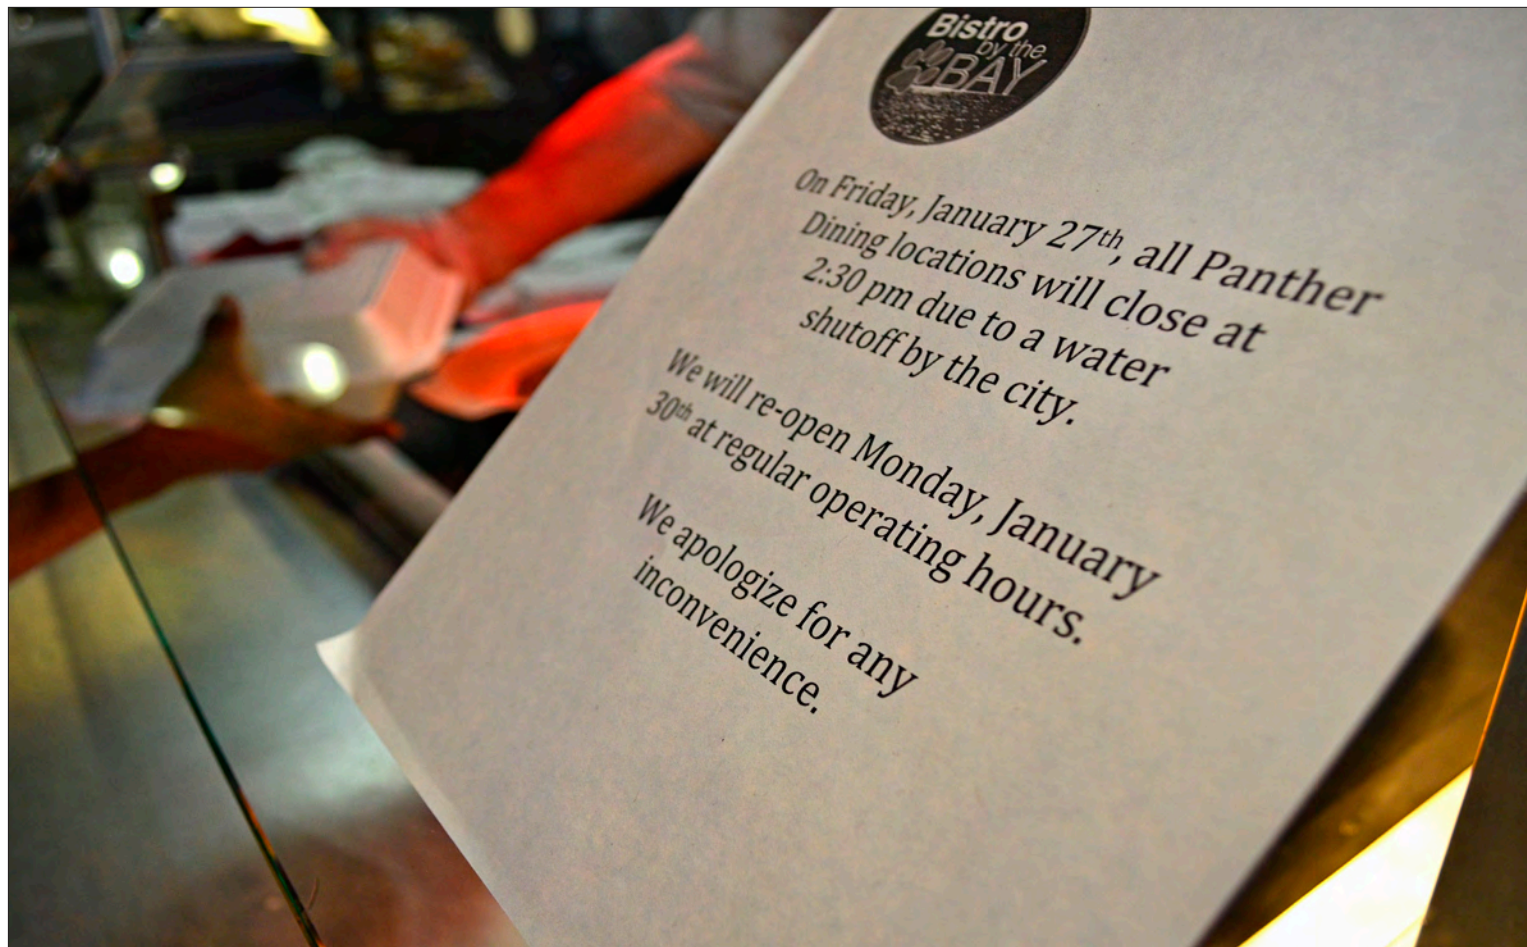 Bistro
by the
BAY
On Friday, January 27th, all Panther
Dining locations will close at
2:30 pm due to a water
shutoff by the city.
We will re-open Monday, January
30th at regular operating hours.
We apologize for any
inconvenience.